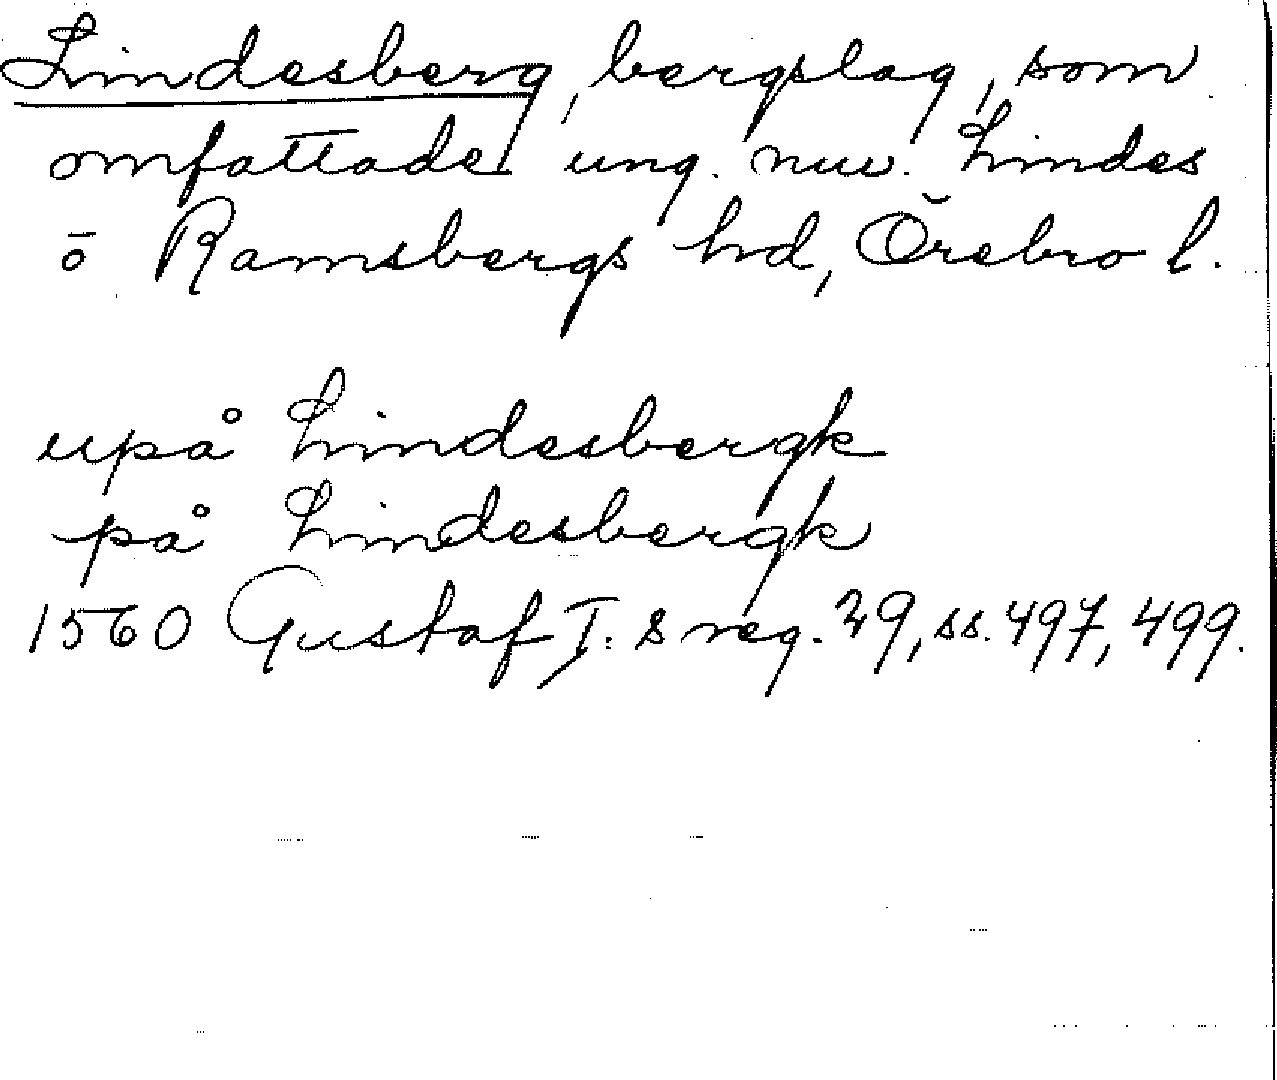 Lindesberg, bergslag, som
omfattade ung. nuv. Lindes
o Ramsbergs hd, Örebro l.
upå Lindesbergk
på Lindesbergk
1560 Gustaf I:s reg. 29, ss. 497, 499.